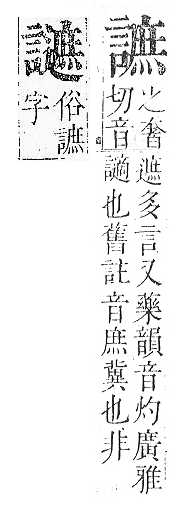 謶
之奢
切音
遮多言又藥韻音灼廣雅
讁也舊註音庶冀也非
俗謶
字